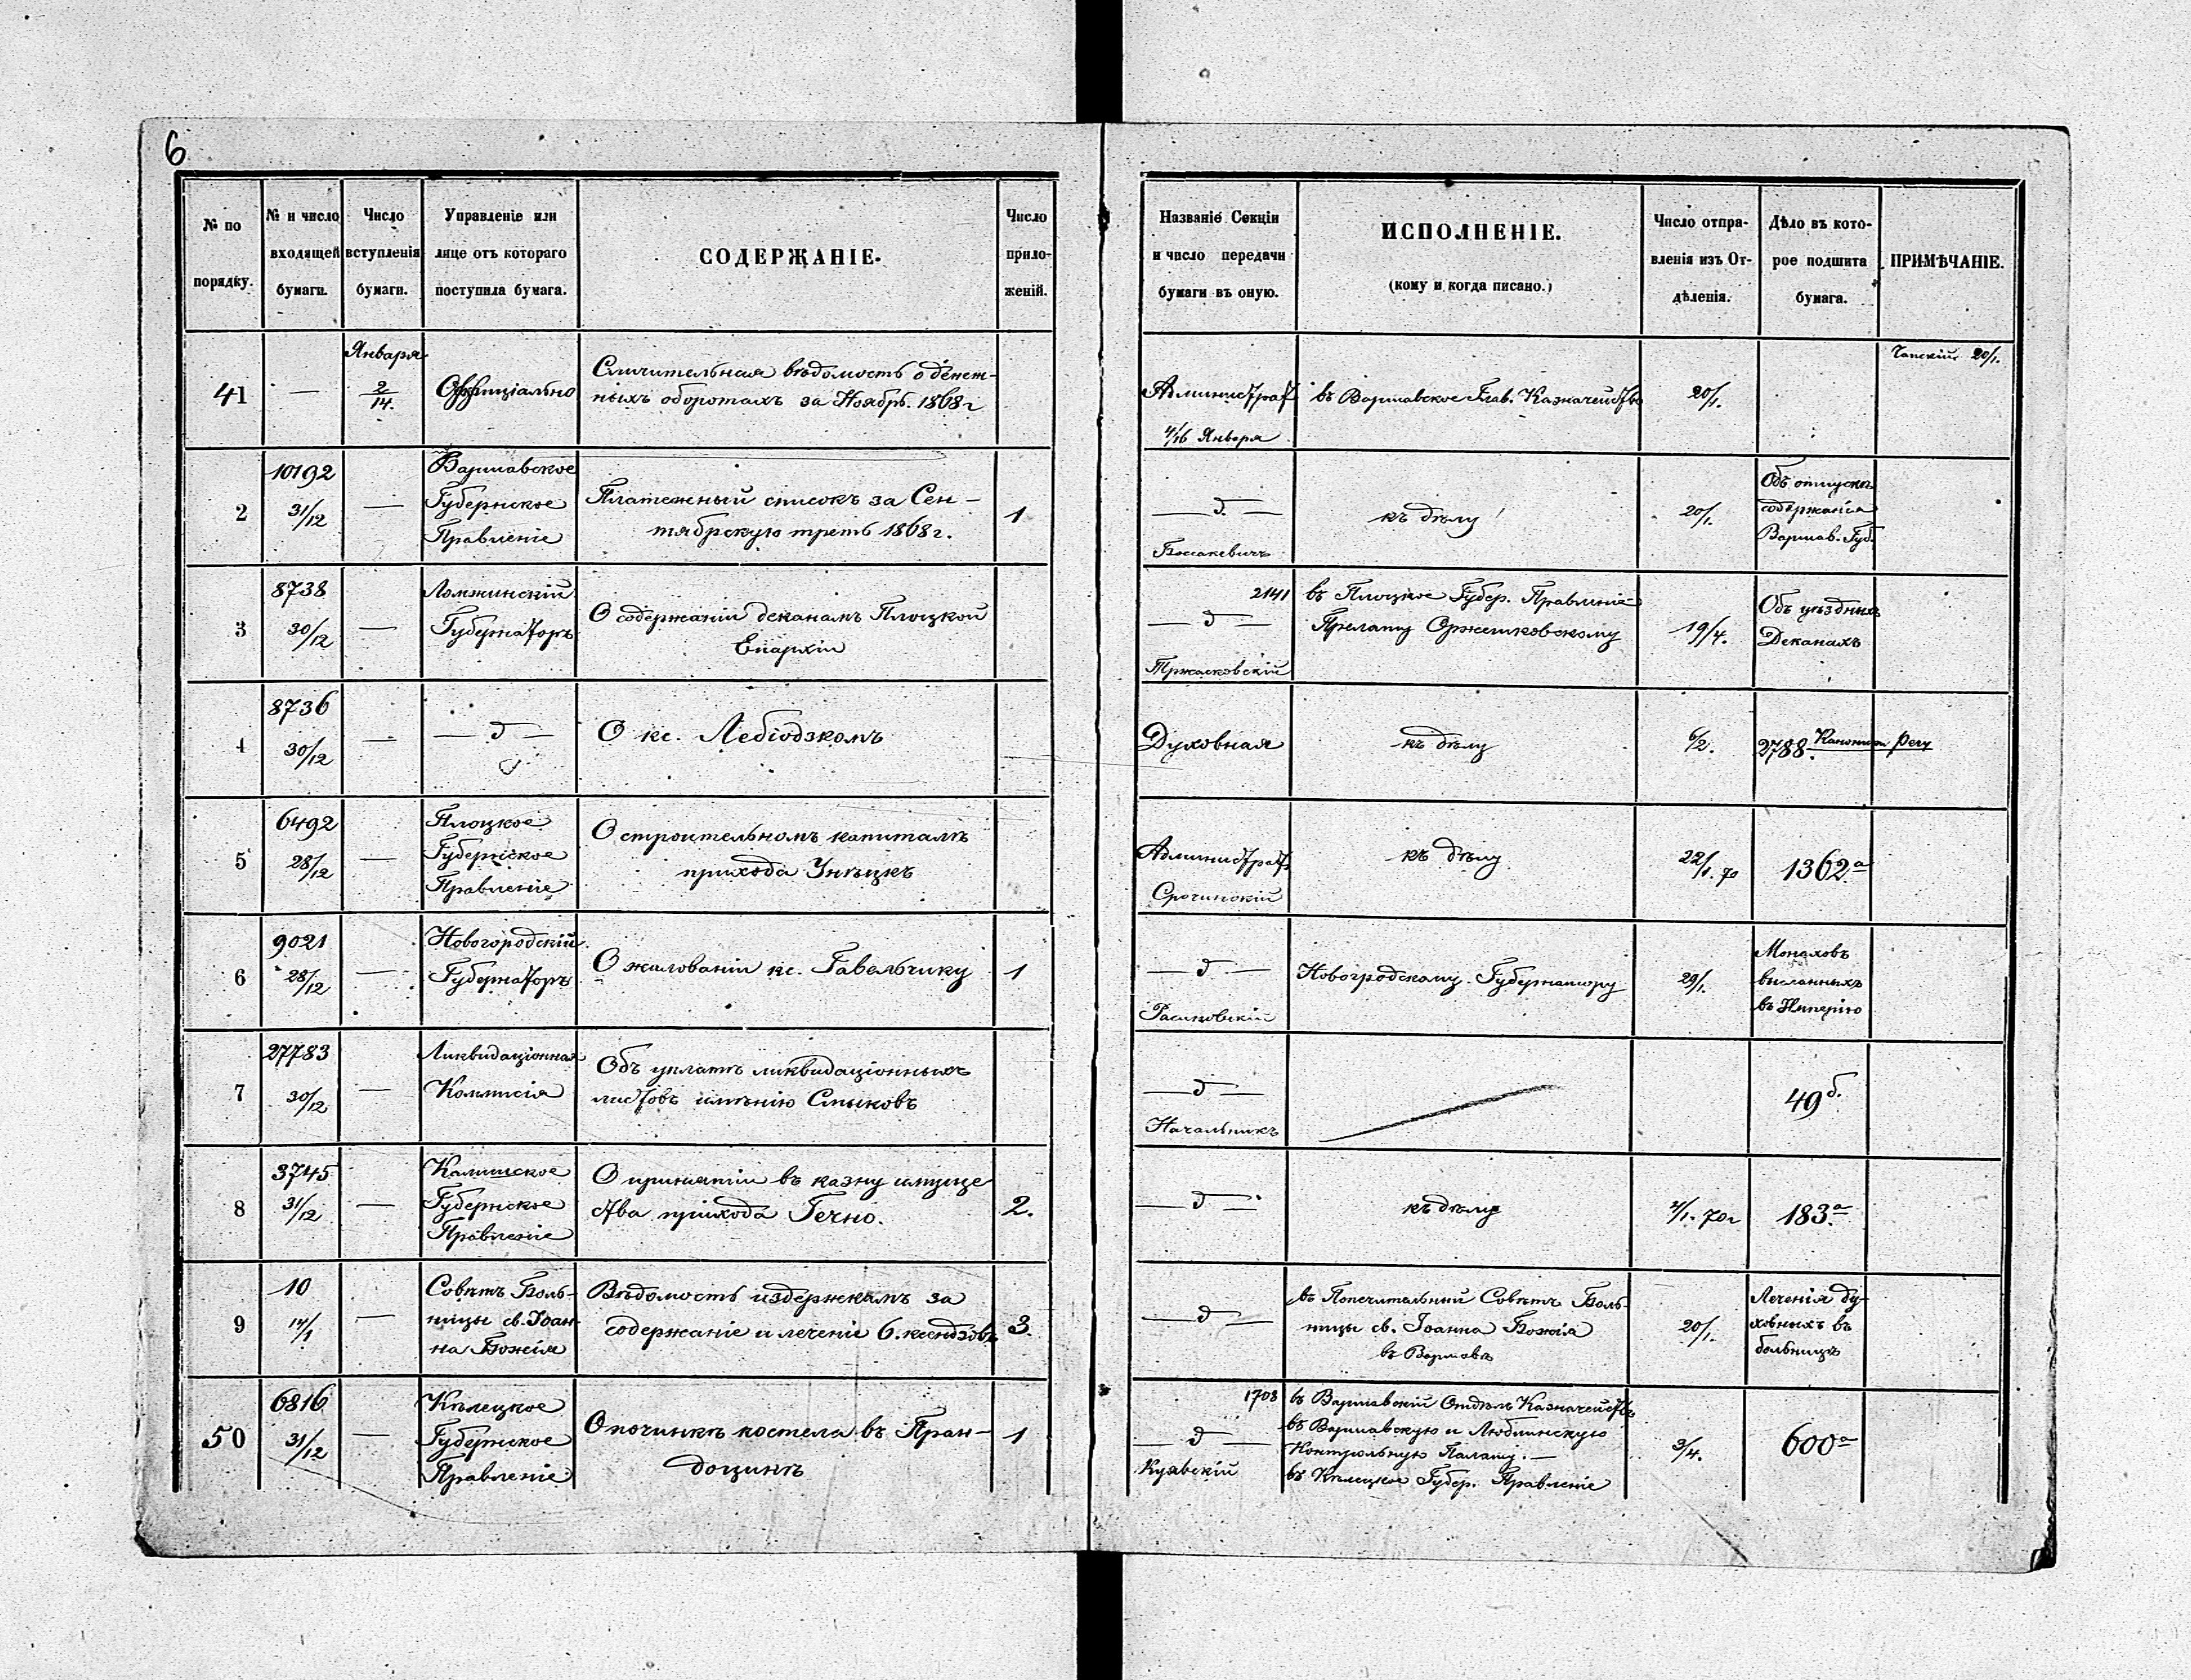 6
№ по
порядку.
№ и число
входящей
бумаги.
Число
вступленія
бумаги.
Управленіе или
лице отъ котораго
поступила бумага.
СОДЕРЖАНІЕ.
Число
прило-
женій.
Названіе Секціи
и число передачи
бумаги въ оную.
ИСПОЛНЕНІЕ.
(кому и когда писано.)
Число отпра-
вленія изъ От-
дѣленія.
Дѣло въ кото-
рое подшита
бумага.
ПРИМѢЧАНІЕ.
41
—
Января
2/14.
Оффиціально
Сличительная вѣдомость о денеж-
ныхъ оборотахъ за Ноябрь 1868 г
Администрат
4/16 Января
въ Варшавское Глав. Казначейство
20/1.
Чапскій 20/1.
2
10192
31/12
—
Варшавское
Губернское
Правленіе
Платежный списокъ за Сен-
тябрскую треть 1868 г.
1
— д —
къ дѣлу
20/1.
Объ отпускѣ
содержанія
Варшав. Губ.
3
8738
30/12
—
Ломжинскій
Губернаторъ
О содержаніи деканамъ Плоцкой
Епархіи
2141
— д —
Тржасковскій
въ Плоцкое Губер. Правленіе
Прелату Оржешковскому
19/4.
Объ уѣздныхъ
Деканахъ
4
8736
30/12
—
— д —
О кс. Лебіодзкомъ
Духовная
къ дѣлу
6/2.
2788.
5
6492
28/12
—
Плоцкое
Губернское
Правленіе
О строительномъ капиталѣ
прихода Унѣцкъ
Администрат
Срочинскій
къ дѣлу
22/1. 70
1362а
6
9021
28/12
—
Новогородскій
Губернаторъ
О жалованіи кс. Гавельчику
1
— д —
Новогродскому Губернатору
29/1.
Монаховъ
высланныхъ
въ Имперію
7
27783
30/12
—
Ликвидаціонная
Коммисія
Объ уплатѣ ликвидаціонныхъ
листовъ имѣнію Смыковъ
— д —
Начальникъ
49 б.
8
3745
31/12
—
Калишское
Губернское
Правленіе
О принятіи въ казну имуще
ства прихода Гечно.
2.
— д —
къ дѣлу
183а
9
10
14/1
—
Совѣтъ Боль-
ницы св. Іоан-
на Божія
Вѣдомость издержкамъ за
содержаніе и леченіе 6. ксендзовъ
3.
— д —
въ Попечительный Совѣтъ Боль-
ницы св. Іоанна Божія
въ Варшавѣ
20/1.
Леченія ду-
ховныхъ въ
больницѣ
50
6816
31/12
—
Кѣлецкое
Губернское
Правленіе
О починкѣ костела въ Пран-
доцинѣ
1
1703
— д —
Куявскій
въ Варшавскій Отдѣлъ Казначейства
въ Варшавскую и Люблинскую
Контрольную Палату. —
въ Кѣлецкое Губер. Правленіе
3/4.
600а